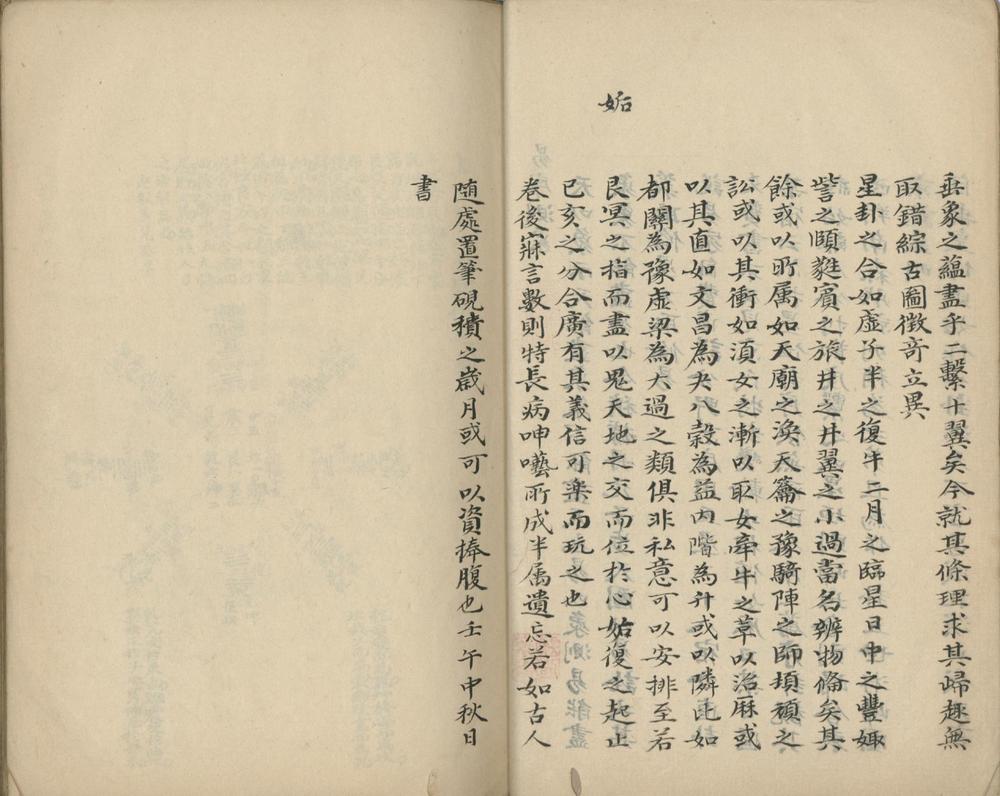 垂象之蘊盡乎二繫十翼矣今就其條理求其歸趣無
取錯綜古圖徵奇立異
星卦之合如虛子半之復牛二月之臨星日中之豐娵
訾之頤蕤賓之旅井之井翼之小過當名辨物備矣其
餘或以所属如天廟之渙天籥之豫騎陣之師頊頑之
訟或以其衝如湏女之漸以取女牽牛之革以治厤或
以其直如文昌為夬八穀為益內階為升或以隣比如
都關為豫虛梁為大過之類俱非私意可以安排至若
艮冥之指而盡以鬼天地之交而位於心姤復之起止
巳亥之分合廣有其義信可樂而玩之也
卷後寐言數則特長病呻囈所成半属遺忘若如古人
随處置筆硯積之歲月或可以資捧腹也壬午中秋日
書
姤